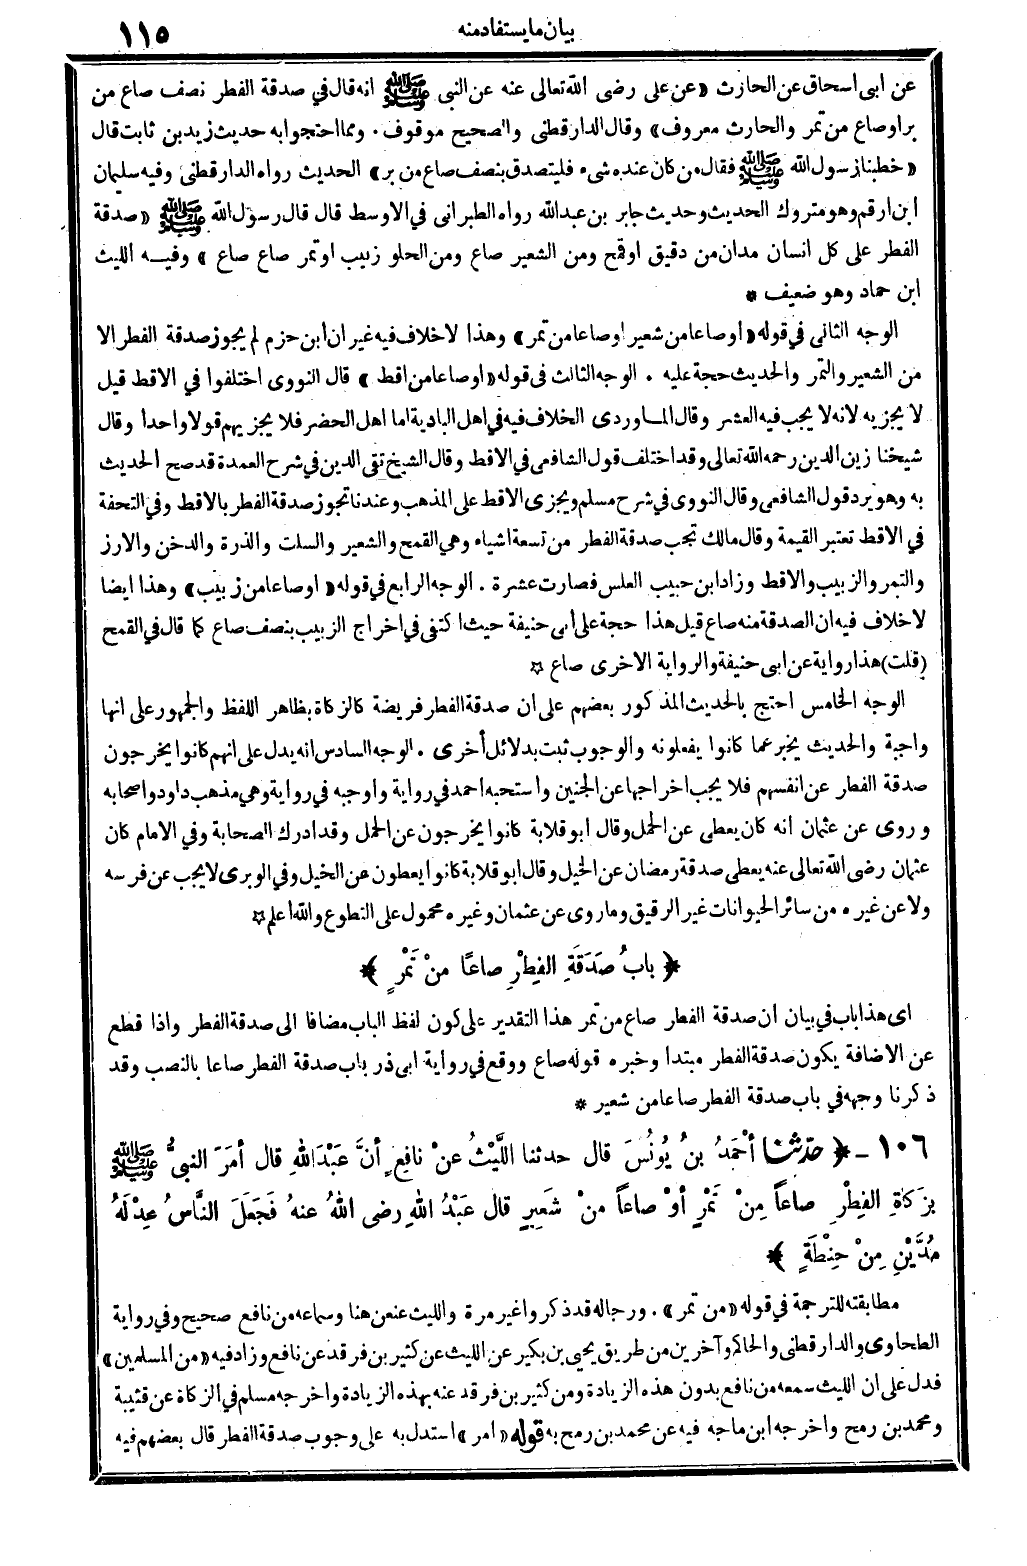 بيان ما يستفاد منه
١١٥
عن ابى اسحاق عن الحارث «عن على رضى الله تعالى عنه عن النبى ﷺ انه قال في صدقة الفطر نصف صاع من
بر او صاع من تمر والحارث معروف» وقال الدارقطنى والصحيح موقوف . ومما احتجوا به حديث زيد بن ثابت قال
«خطبنا رسول الله ﷺ فقال من كان عنده شىء فليتصدق بنصف صاع من بر» الحديث رواه الدارقطنى وفيه سليمان
ابن ارقم وهو متروك الحديث وحديث جابر بن عبد الله رواه الطبرانى في الاوسط قال قال رسول الله ﷺ «صدقة
الفطر على كل انسان مدان من دقيق او قمح ومن الشعير صاع ومن الحلو زبيب او تمر صاع صاع» وفيه الليث
ابن حماد وهو ضعيف *
الوجه الثانى في قوله «او صاعا من شعير او صاعا من تمر» وهذا لا خلاف فيه غير ان ابن حزم لم يجوز صدقة الفطر الا
من الشعير والتمر والحديث حجة عليه . الوجه الثالث فى قوله «او صاعا من اقط» قال النووى اختلفوا في الاقط قيل
لا يجزيه لانه لا يجب فيه العشر وقال الماوردى الخلاف فيه في اهل البادية اما اهل الحضر فلا يجزيهم قولا واحدا وقال
شيخنا زين الدين رحمه الله تعالى وقد اختلف قول الشافعى في الاقط وقال الشيخ تقى الدين في شرح العمدة قد صح الحديث
به وهو يرد قول الشافعى وقال النووى في شرح مسلم ويجزى الاقط على المذهب وعندنا تجوز صدقة الفطر بالاقط وفي التحفة
في الاقط تعتبر القيمة وقال مالك تجب صدقة الفطر من تسعة اشياء وهي القمح والشعير والسلت والذرة والدخن والارز
والتمر والزبيب والاقط وزاد ابن حبيب العلس فصارت عشرة . الوجه الرابع في قوله «او صاعا من زبيب» وهذا ايضا
لا خلاف فيه ان الصدقة منه صاع قيل هذا حجة على أبى حنيفة حيث اكتفى في اخراج الزبيب بنصف صاع كما قال في القمح
(قلت) هذا رواية عن ابى حنيفة والرواية الاخرى صاع ☆
الوجه الخامس احتج بالحديث المذكور بعضهم على ان صدقة الفطر فريضة كالزكاة بظاهر اللفظ والجمهور على انها
واجبة والحديث يخبر عما كانوا يفعلونه والوجوب ثبت بدلائل أخرى . الوجه السادس انه يدل على انهم كانوا يخرجون
صدقة الفطر عن انفسهم فلا يجب اخراجها عن الجنين واستحبه احمد في رواية واوجبه في رواية وهي مذهب داود واصحابه
وروى عن عثمان انه كان يعطى عن الحمل وقال ابو قلابة كانوا يخرجون عن الحمل وقد ادرك الصحابة وفي الامام كان
عثمان رضى الله تعالى عنه يعطى صدقة رمضان عن الخيل وقال ابو قلابة كانوا يعطون عن الخيل وفي الوبرى لا يجب عن فرسه
ولا عن غيره من سائر الحيوانات غير الرقيق وما روى عن عثمان وغيره محمول على التطوع والله اعلم ☆
﴿ بابُ صَدَقَةِ الفِطْرِ صاعًا مِنْ تَمْرٍ ﴾
اى هذا باب في بيان ان صدقة الفطر صاع من تمر هذا التقدير على كون لفظ الباب مضافا الى صدقة الفطر واذا قطع
عن الاضافة يكون صدقة الفطر مبتدا وخبره قوله صاع ووقع في رواية ابى ذر باب صدقة الفطر صاعا بالنصب وقد
ذكرنا وجهه في باب صدقة الفطر صاعا من شعير *
١٠٦ - ﴿ حدّثنا أحْمَدُ بنُ يُونُسَ قال حدثنا اللَّيْثُ عنْ نافِعٍ أنَّ عَبْدَ اللهِ قال أمَرَ النبىُّ ﷺ
بزَكاةِ الفِطْرِ صاعاً مِنْ تَمْرٍ أوْ صاعاً منْ شَعِيرٍ قال عَبْدُ اللهِ رضى اللهُ عنهُ فَجَعَلَ النَّاسُ عِدْلَهُ
مُدَّيْنِ مِنْ حِنْطَةٍ ﴾
مطابقته للترجمة في قوله «من تمر» . ورجاله قد ذكروا غير مرة والليث عنعن هنا وسماعه من نافع صحيح وفي رواية
الطحاوى والدارقطنى والحاكم وآخرين من طريق يحيى بن بكير عن الليث عن كثير بن فرقد عن نافع وزاد فيه «من المسلمين»
فدل على ان الليث سمعه من نافع بدون هذه الزيادة ومن كثير بن فرقد عنه بهذه الزيادة واخرجه مسلم في الزكاة عن قتيبة
ومحمد بن رمح واخرجه ابن ماجه فيه عن محمد بن رمح به قوله «امر» استدل به على وجوب صدقة الفطر قال بعضهم فيه